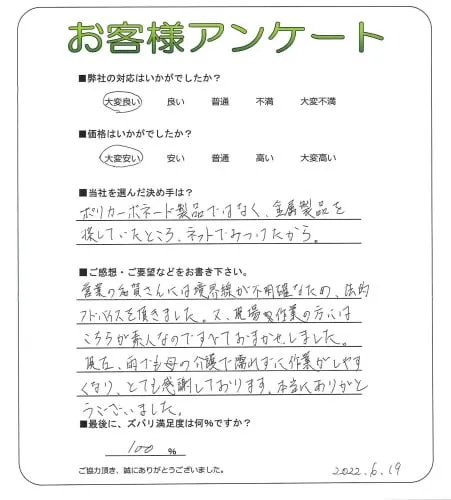 お客様アンケート
■弊社の対応はいかがでしたか？
大変良い 良い 普通 不満 大変不満
■価格はいかがでしたか？
大変安い 安い 普通 高い 大変高い
■当社を選んだ決め手は？
ポリカーボネード製品ではなく、金属製品を
探していたところ、ネットでみつけたから。
■ご感想・ご要望などをお書き下さい。
営業の名賀さんには境界線が不明確なため、法的
アドバイスを頂きました。又、現場作業の方には
こちらが素人なのですべておまかせしました。
現在、雨でも母の介護で濡れずに作業がしやす
くなり、とても感謝しております。本当にありがと
うございました。
■最後に、ズバリ満足度は何%ですか？
100 %
ご協力頂き、誠にありがとうございました。
2022.6.19